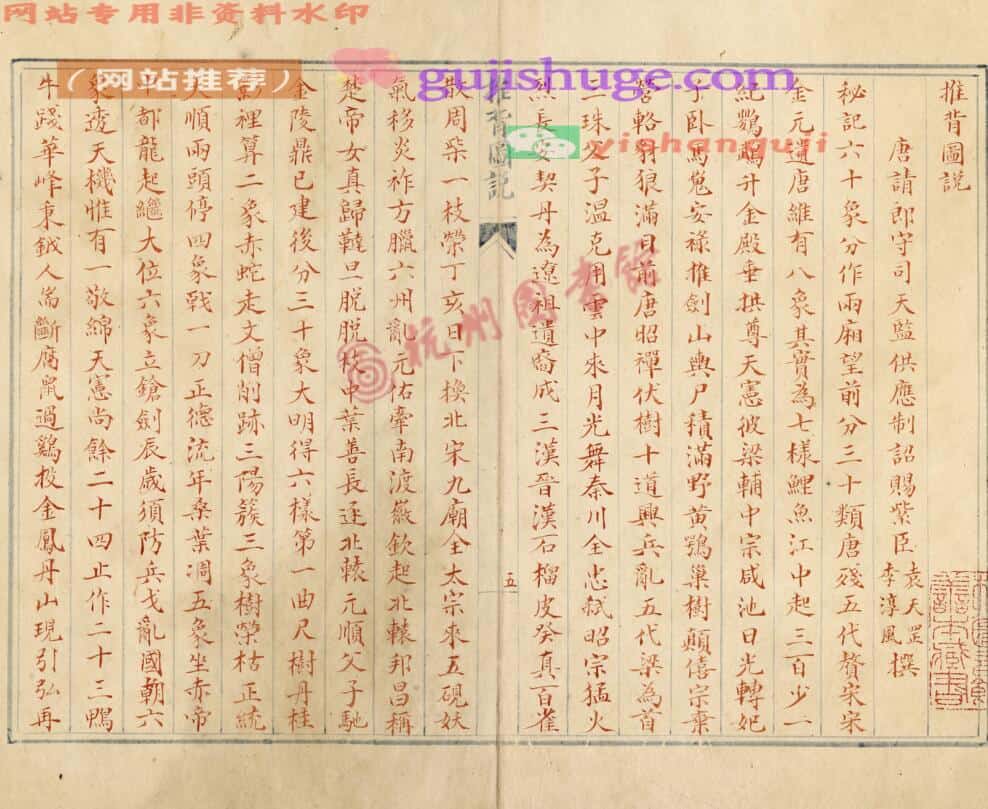 网站专用非资料水印
（网站推荐）
gujishuge.com
yishanguji
杭州图书馆
推背圖説
唐請郎守司天監供應制詔賜紫臣袁天罡李淳風撰
秘記六十象分作兩廂望前分三十類唐殘五代贅宋宋
金元遺唐維有八象其實為七樣鯉魚江中起三百少一
紀鸚鵡升金殿垂拱尊天憲彼梁輔中宗咸池日光轉妃
子卧馬嵬安祿推劍山輿尸積滿野黄鶚巢樹顛僖宗棄
輅羽狼滿目前唐昭禪伏樹十道興兵亂五代梁為首
三珠父子溫克用雲中來月光舞秦川全忠弒昭宗猛火
烈長安契丹為遼祖遺裔成三漢晉漢石榴皮癸真百雀
推背圖説
五
散周柴一枝榮丁亥日下換北宋九廟全太宗來五硯妖
氣移炎祚方臘六州亂元佑牽南渡徽欽起北轅邦昌稱
楚帝女真歸韃旦脱脱枝中葉善長逐北轅元順父子馳
金陵鼎已建後分三十象大明得六樣第一曲尺樹丹桂
裡算二象赤蛇走文僧削跡三陽簇三象樹榮枯正統
順兩頭停四象戰一刀正德流年桑葉凋五象坐赤帝
都龍起繼大位六象立鎗劍辰歲須防兵戈亂國朝六
象透天機惟有一敬綿天憲尚餘二十四止作二十三鴨
牛踐華峰秉鉞人當斷腐鼠過鷄投金鳳丹山現引弘再